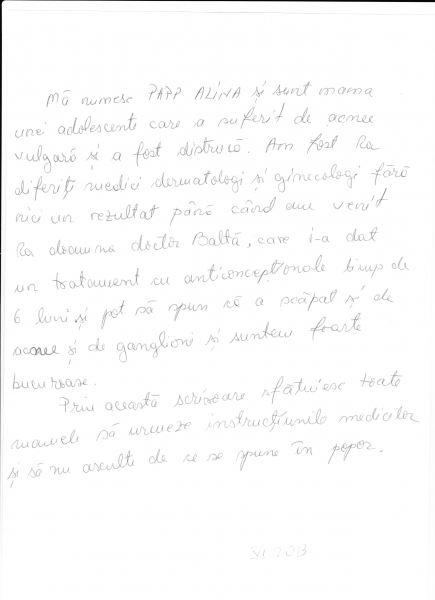 Mă numesc PAPP ALINA și sunt mama
unei adolescente care a suferit de acnee
vulgară și a fost distrusă. Am fost la
diferiți medici dermatologi și ginecologi fără
nici un rezultat până când am venit
la doamna doctor Baltă, care i-a dat
un tratament cu anticoncepționale timp de
6 luni și pot să spun că a scăpat și de
acnee și de ganglioni și suntem foarte
bucuroase.
Prin această scrisoare sfătuiesc toate
mamele să urmeze instrucțiunile medicilor
și să nu asculte de ce se spune în popor.
2013